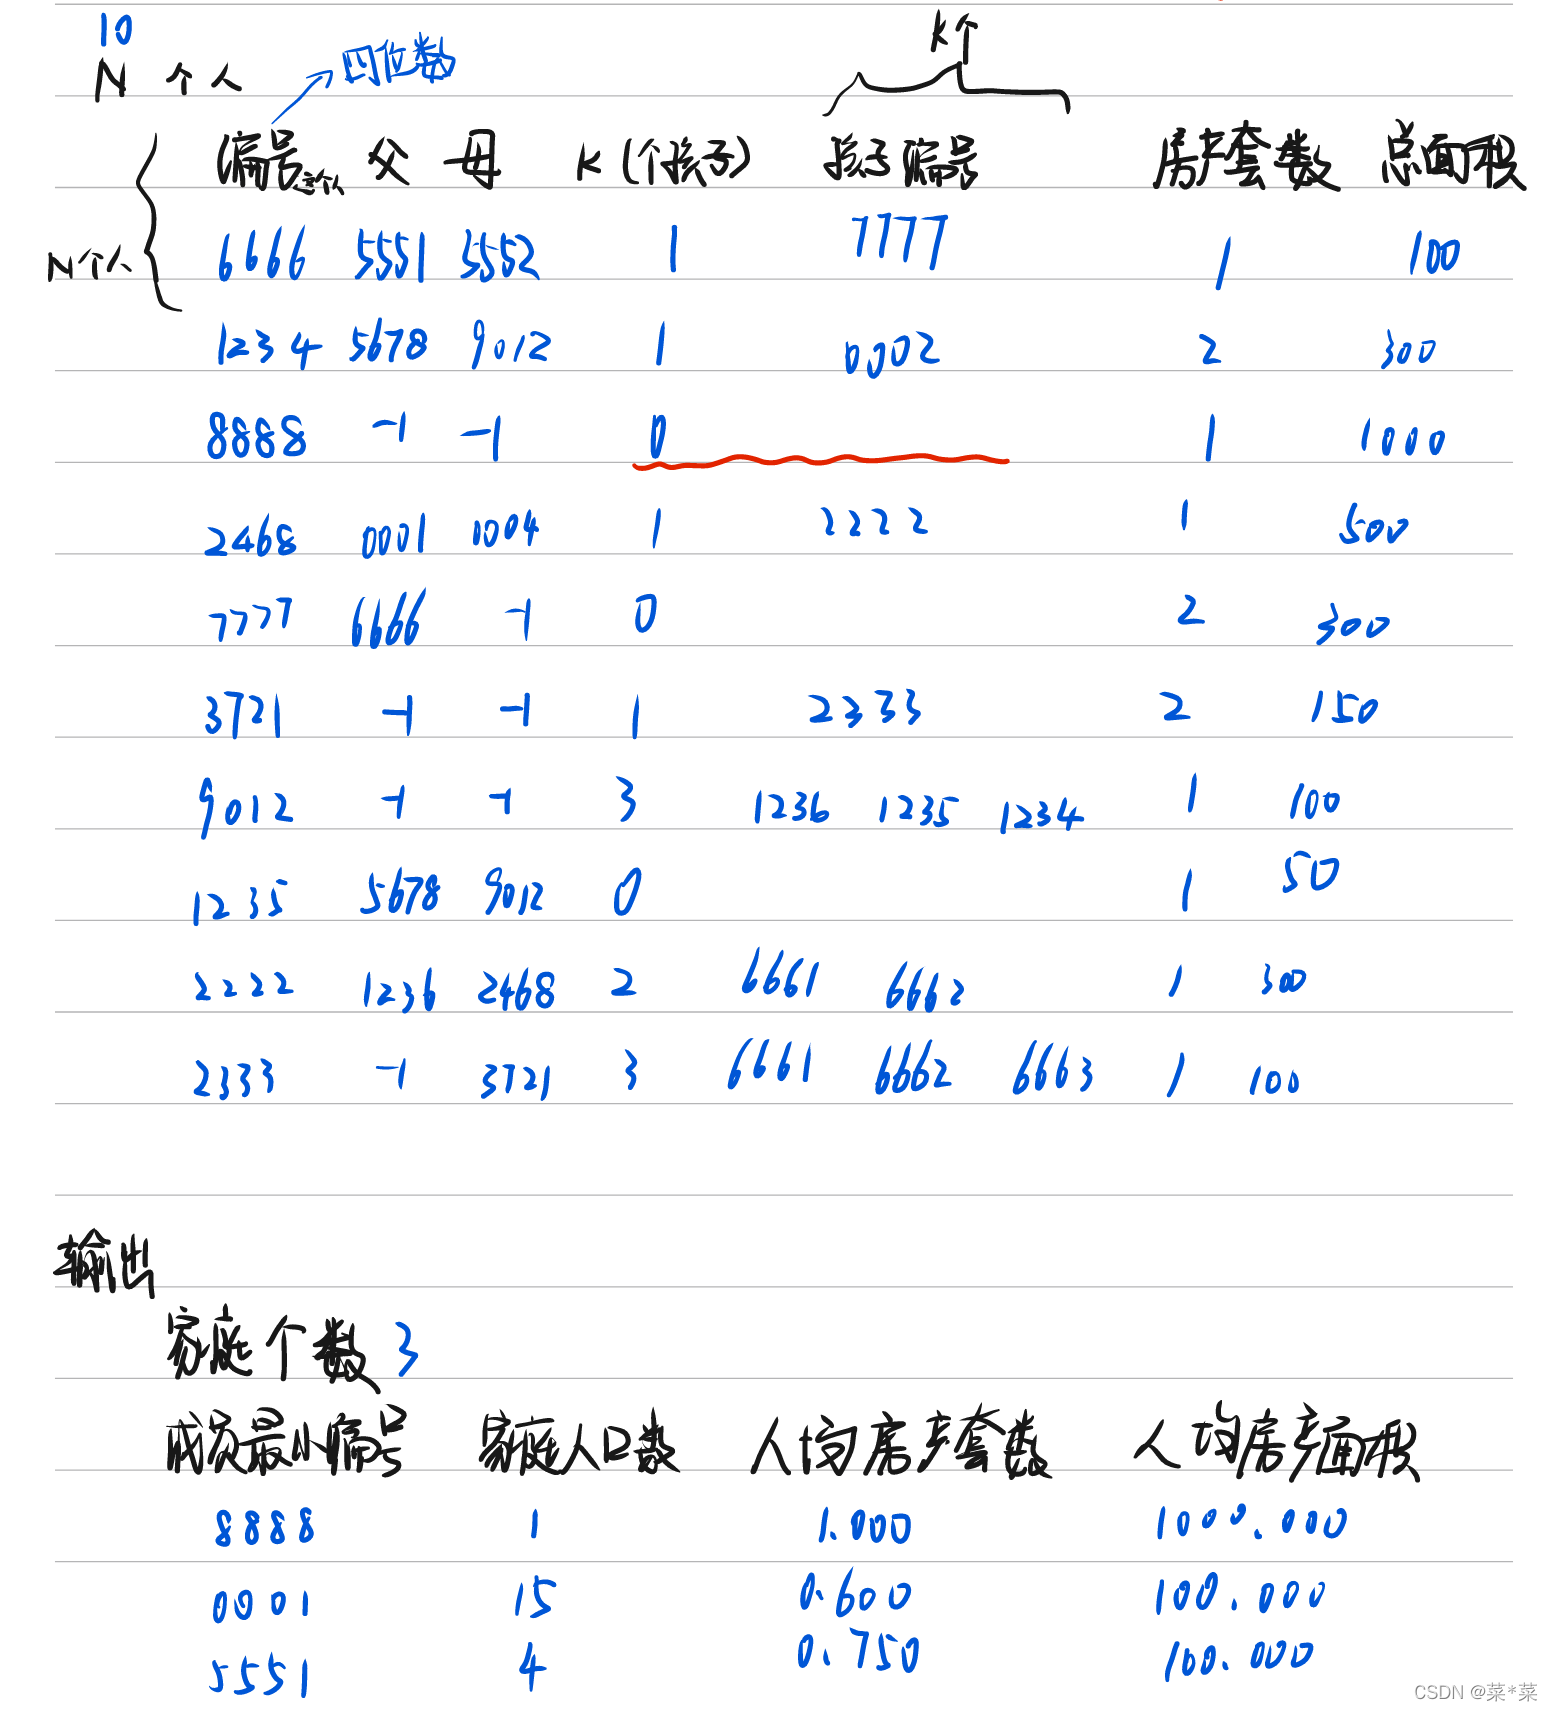 10
N 个人 四位数 K个
编号这个人 父 母 K(个孩子) 孩子编号 房产套数 总面积
N个人
6666 5551 5552 1 7777 1 100
1234 5678 9012 1 0002 2 300
8888 -1 -1 0 1 1000
2468 0001 0004 1 2222 1 500
7777 6666 -1 0 2 300
3721 -1 -1 1 2333 2 150
9012 -1 -1 3 1236 1235 1234 1 100
1235 5678 9012 0 1 50
2222 1236 2468 2 6661 6662 1 300
2333 -1 3721 3 6661 6662 6663 1 100
输出
家庭个数 3
成员最小编号 家庭人口数 人均房产套数 人均房产面积
8888 1 1.000 1000.000
0001 15 0.600 100.000
5551 4 0.750 100.000
CSDN @菜*菜